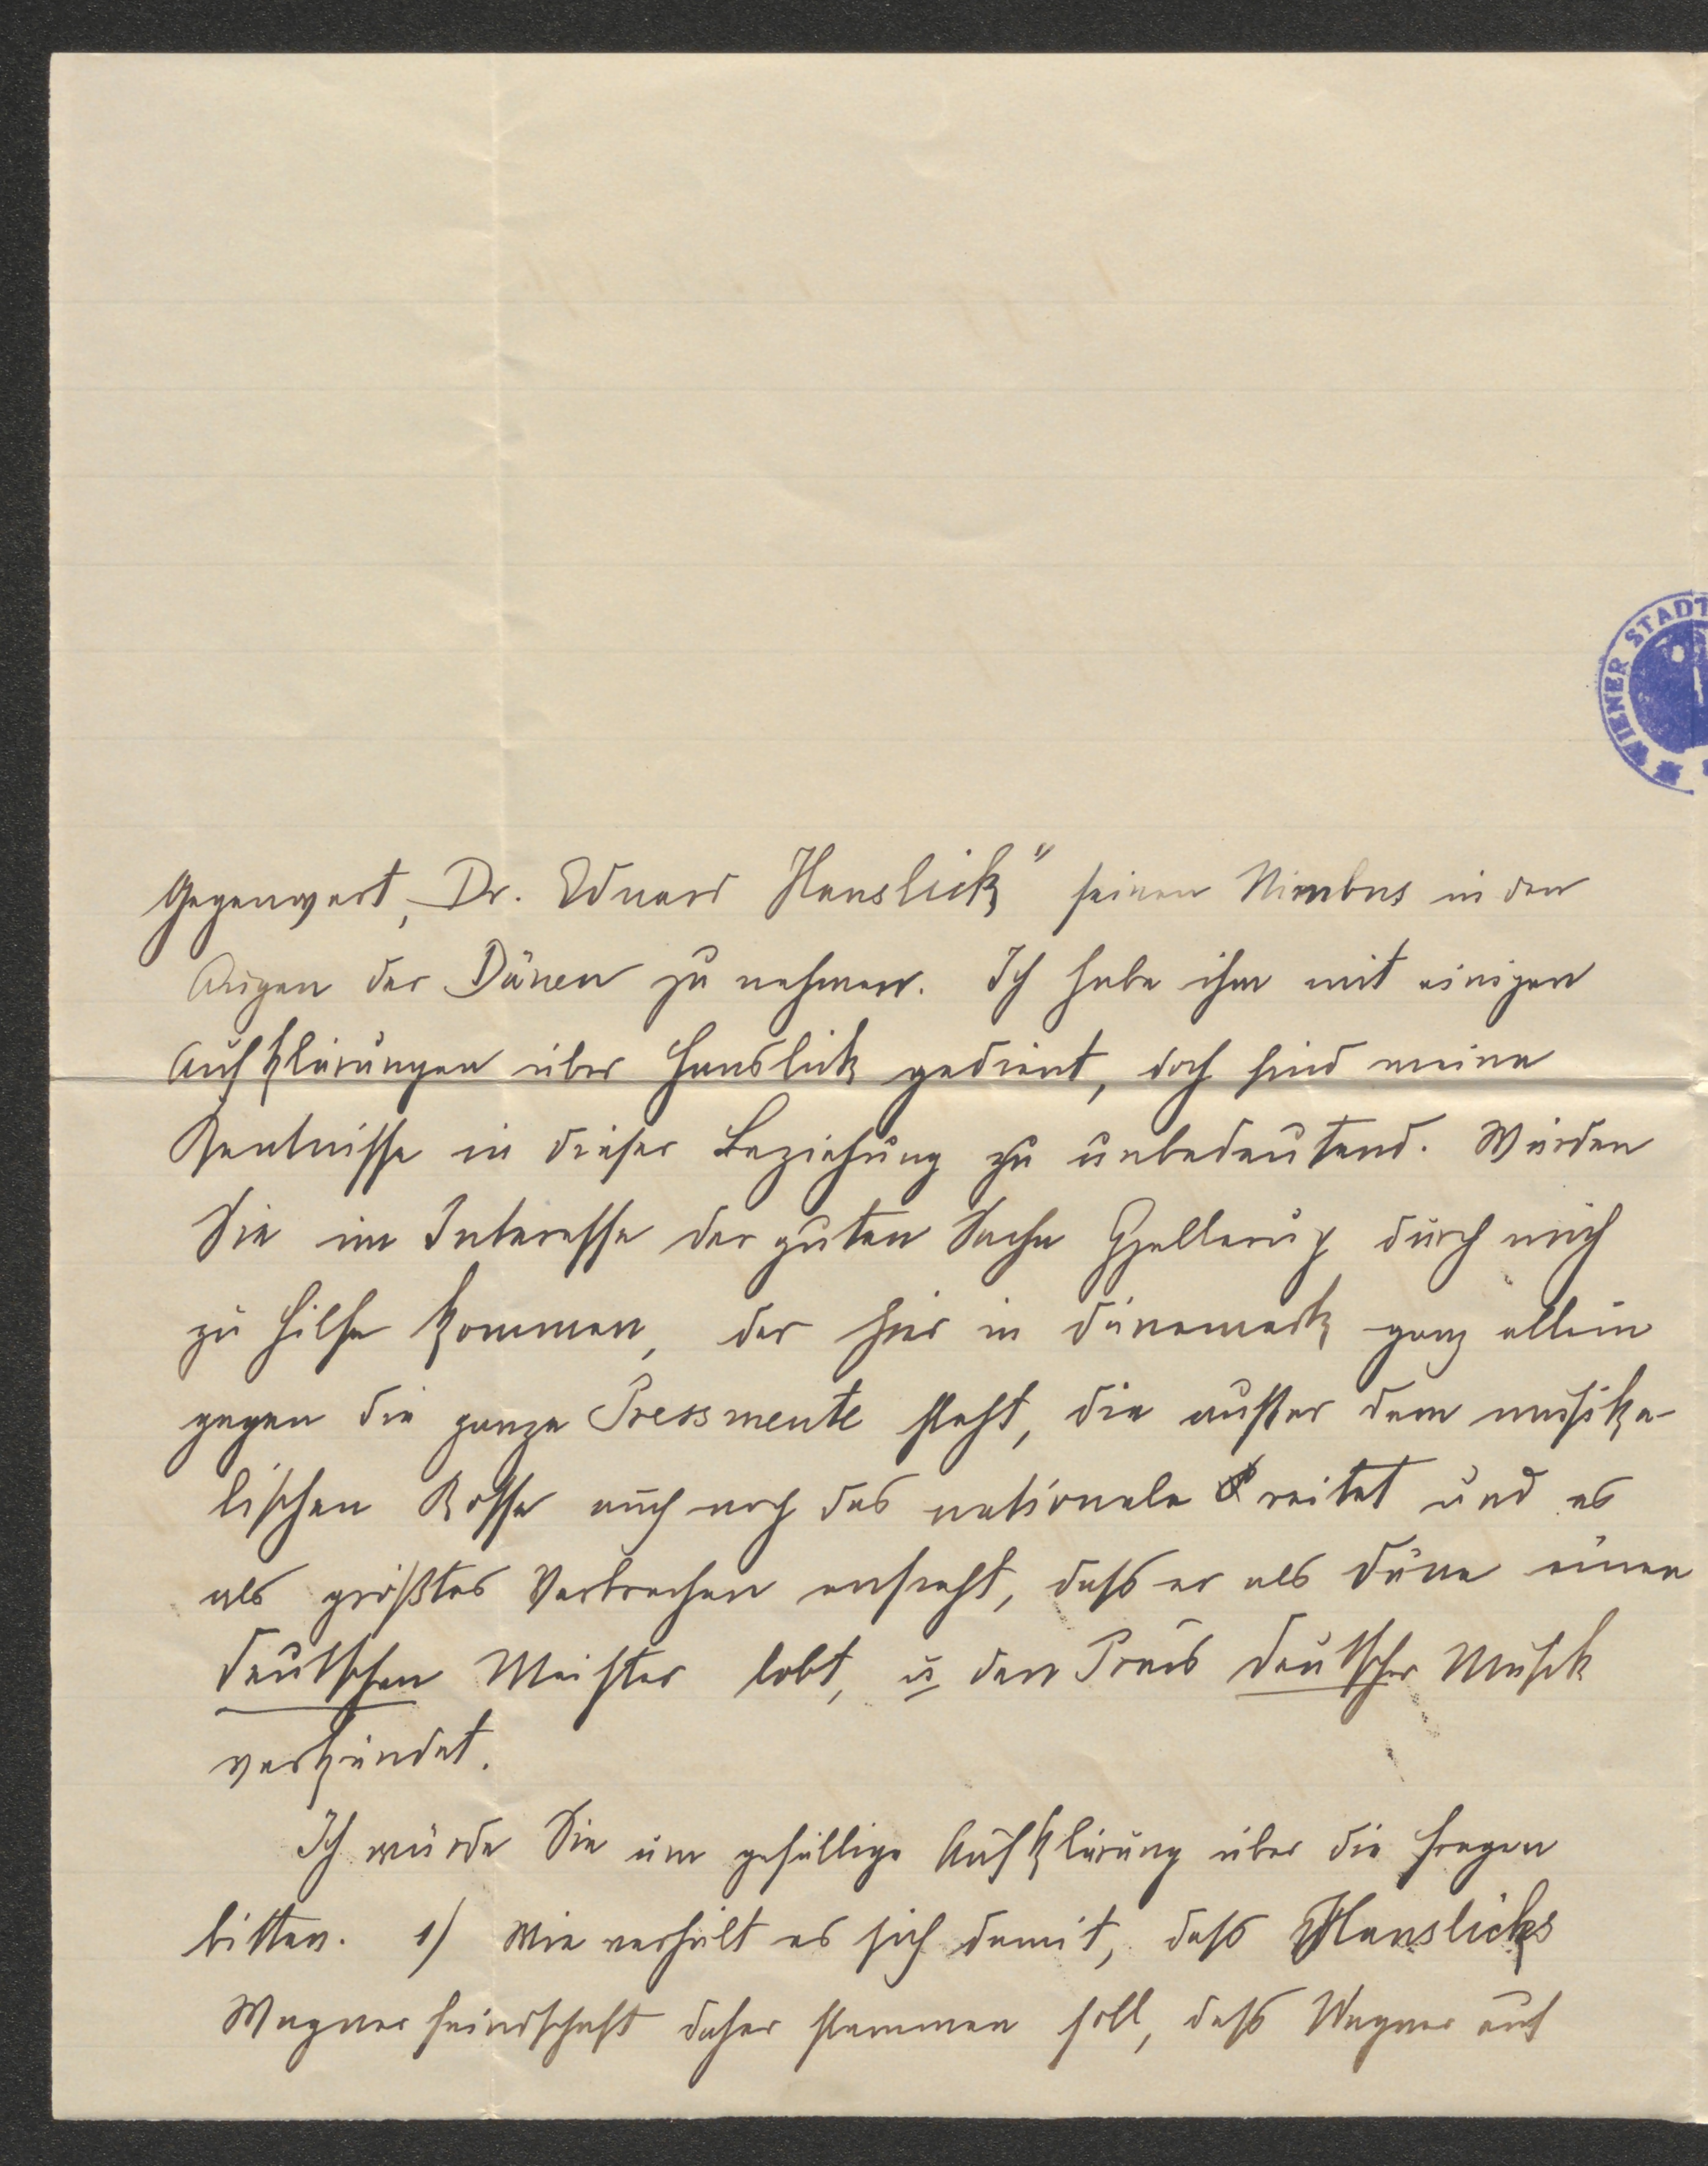 WIENER STADT
Gegenwart, Dr. Eduard Hanslick" seinen Nimbus in den
Augen der Dänen zu nehmen. Ich habe ihm mit einigen
Aufklärungen über Hanslick gedient, doch sind meine
Kentnisse in dieser Beziehung zu unbedeutend. Würden
Sie im Interesse der guten Sache Gjellerup durch mich
zu Hilfe kommen, der hier in Dänemark ganz allein
gegen die ganze Pressmeute steht, die außer dem musika-
lischen Rosse auch noch das nationale reitet und es
als größtes Verbrechen ansieht, daß er als Däne einen
deutschen Meister lobt, u den Preis deutscher Musik
verkündet.
Ich würde Sie um gefällige Aufklärung über die Fragen
bitten. 1) Wie verhält es sich damit, daß Hanslicks
Wagnerfeindschaft daher stammen soll, daß Wagner auf